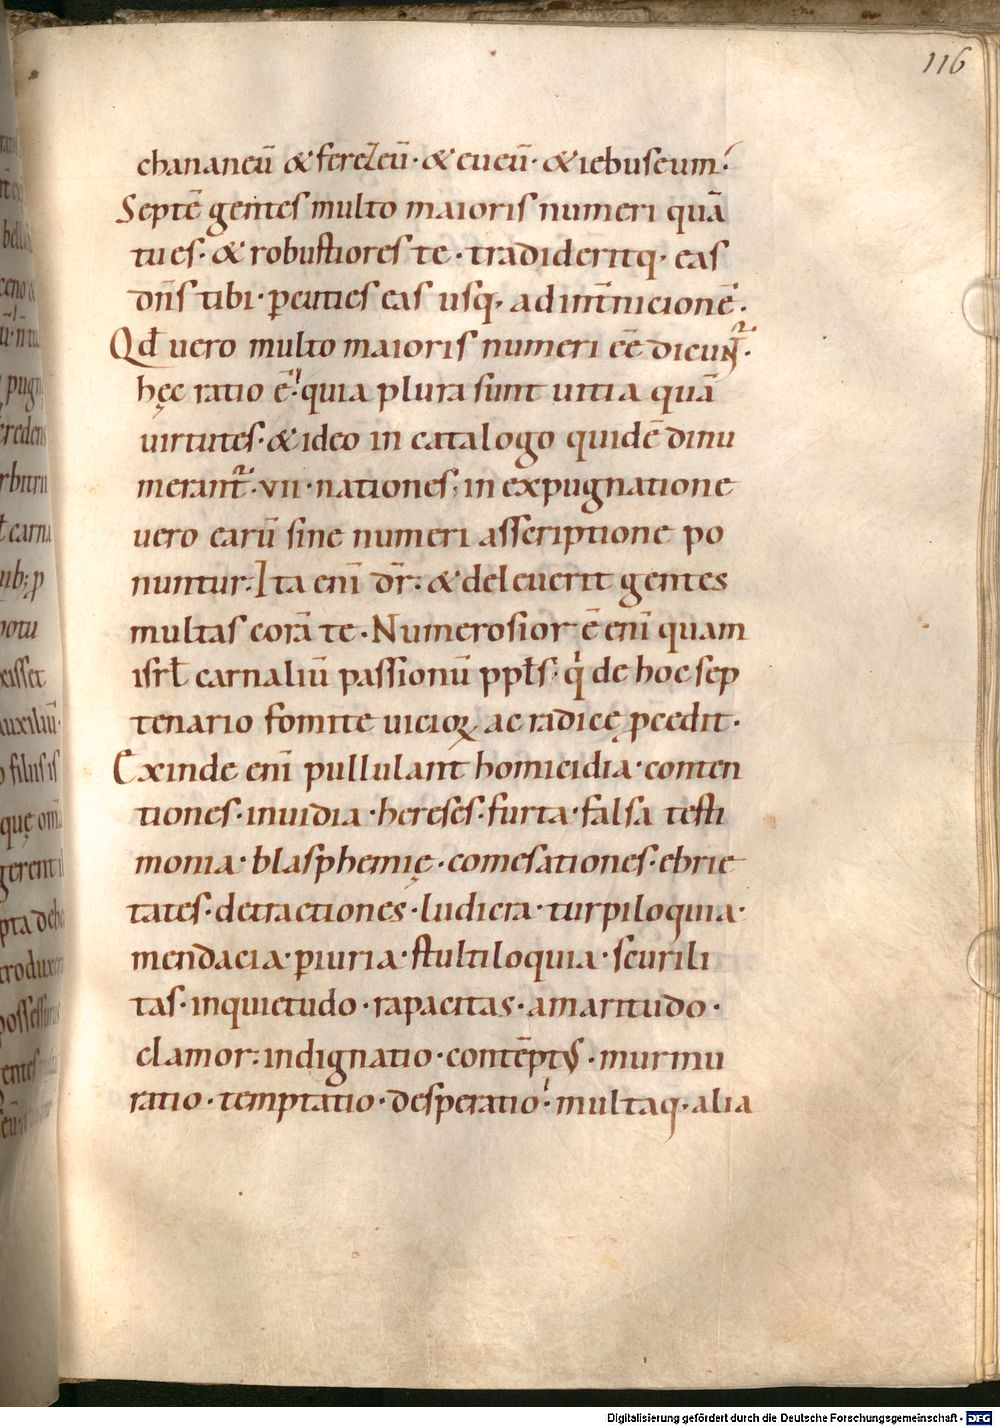 116
chananeū & ferezeū · & eueū · & iebuseum ·
Septē gentes multo maioris numeri quā
tu es · & robustiores te · tradideritq; eas
dn̄s tibi · ꝑcuties eas usq; ad int̄nicionē ·
Qd̄ uero multo maioris numeri ēē dicun̄t ·
hęc ratio ē · quia plura sunt uitia quā
uirtutes · & ideo in catalogo quidē dinu
merant̄ · vii · nationes · in expugnatione
uero earū sine numeri asscriptione po
nuntur · Ita enī dr̄ : & deleuerit gentes
multas corā te · Numerosior ē enī quam
isrł carnaliū passionū ppłs · q̇ de hoc sep
tenario fomite uicioꝝ ac radicę ꝓcedit ·
Exinde enī pullulant homicidia · conten
tiones · inuidia · hereses · furta · falsa testi
monia · blasphemię · comesationes · ebrie
tates · detractiones · ludicra · turpiloquia ·
mendacia · ꝑiuria · stultiloquia · scurili
tas · inquietudo · rapacitas · amaritudo ·
clamor : indignatio · contēptus · murmu
ratio · temptatio · desperatio · multaq; alia
Digitalisierung gefördert durch die Deutsche Forschungsgemeinschaft - DFG